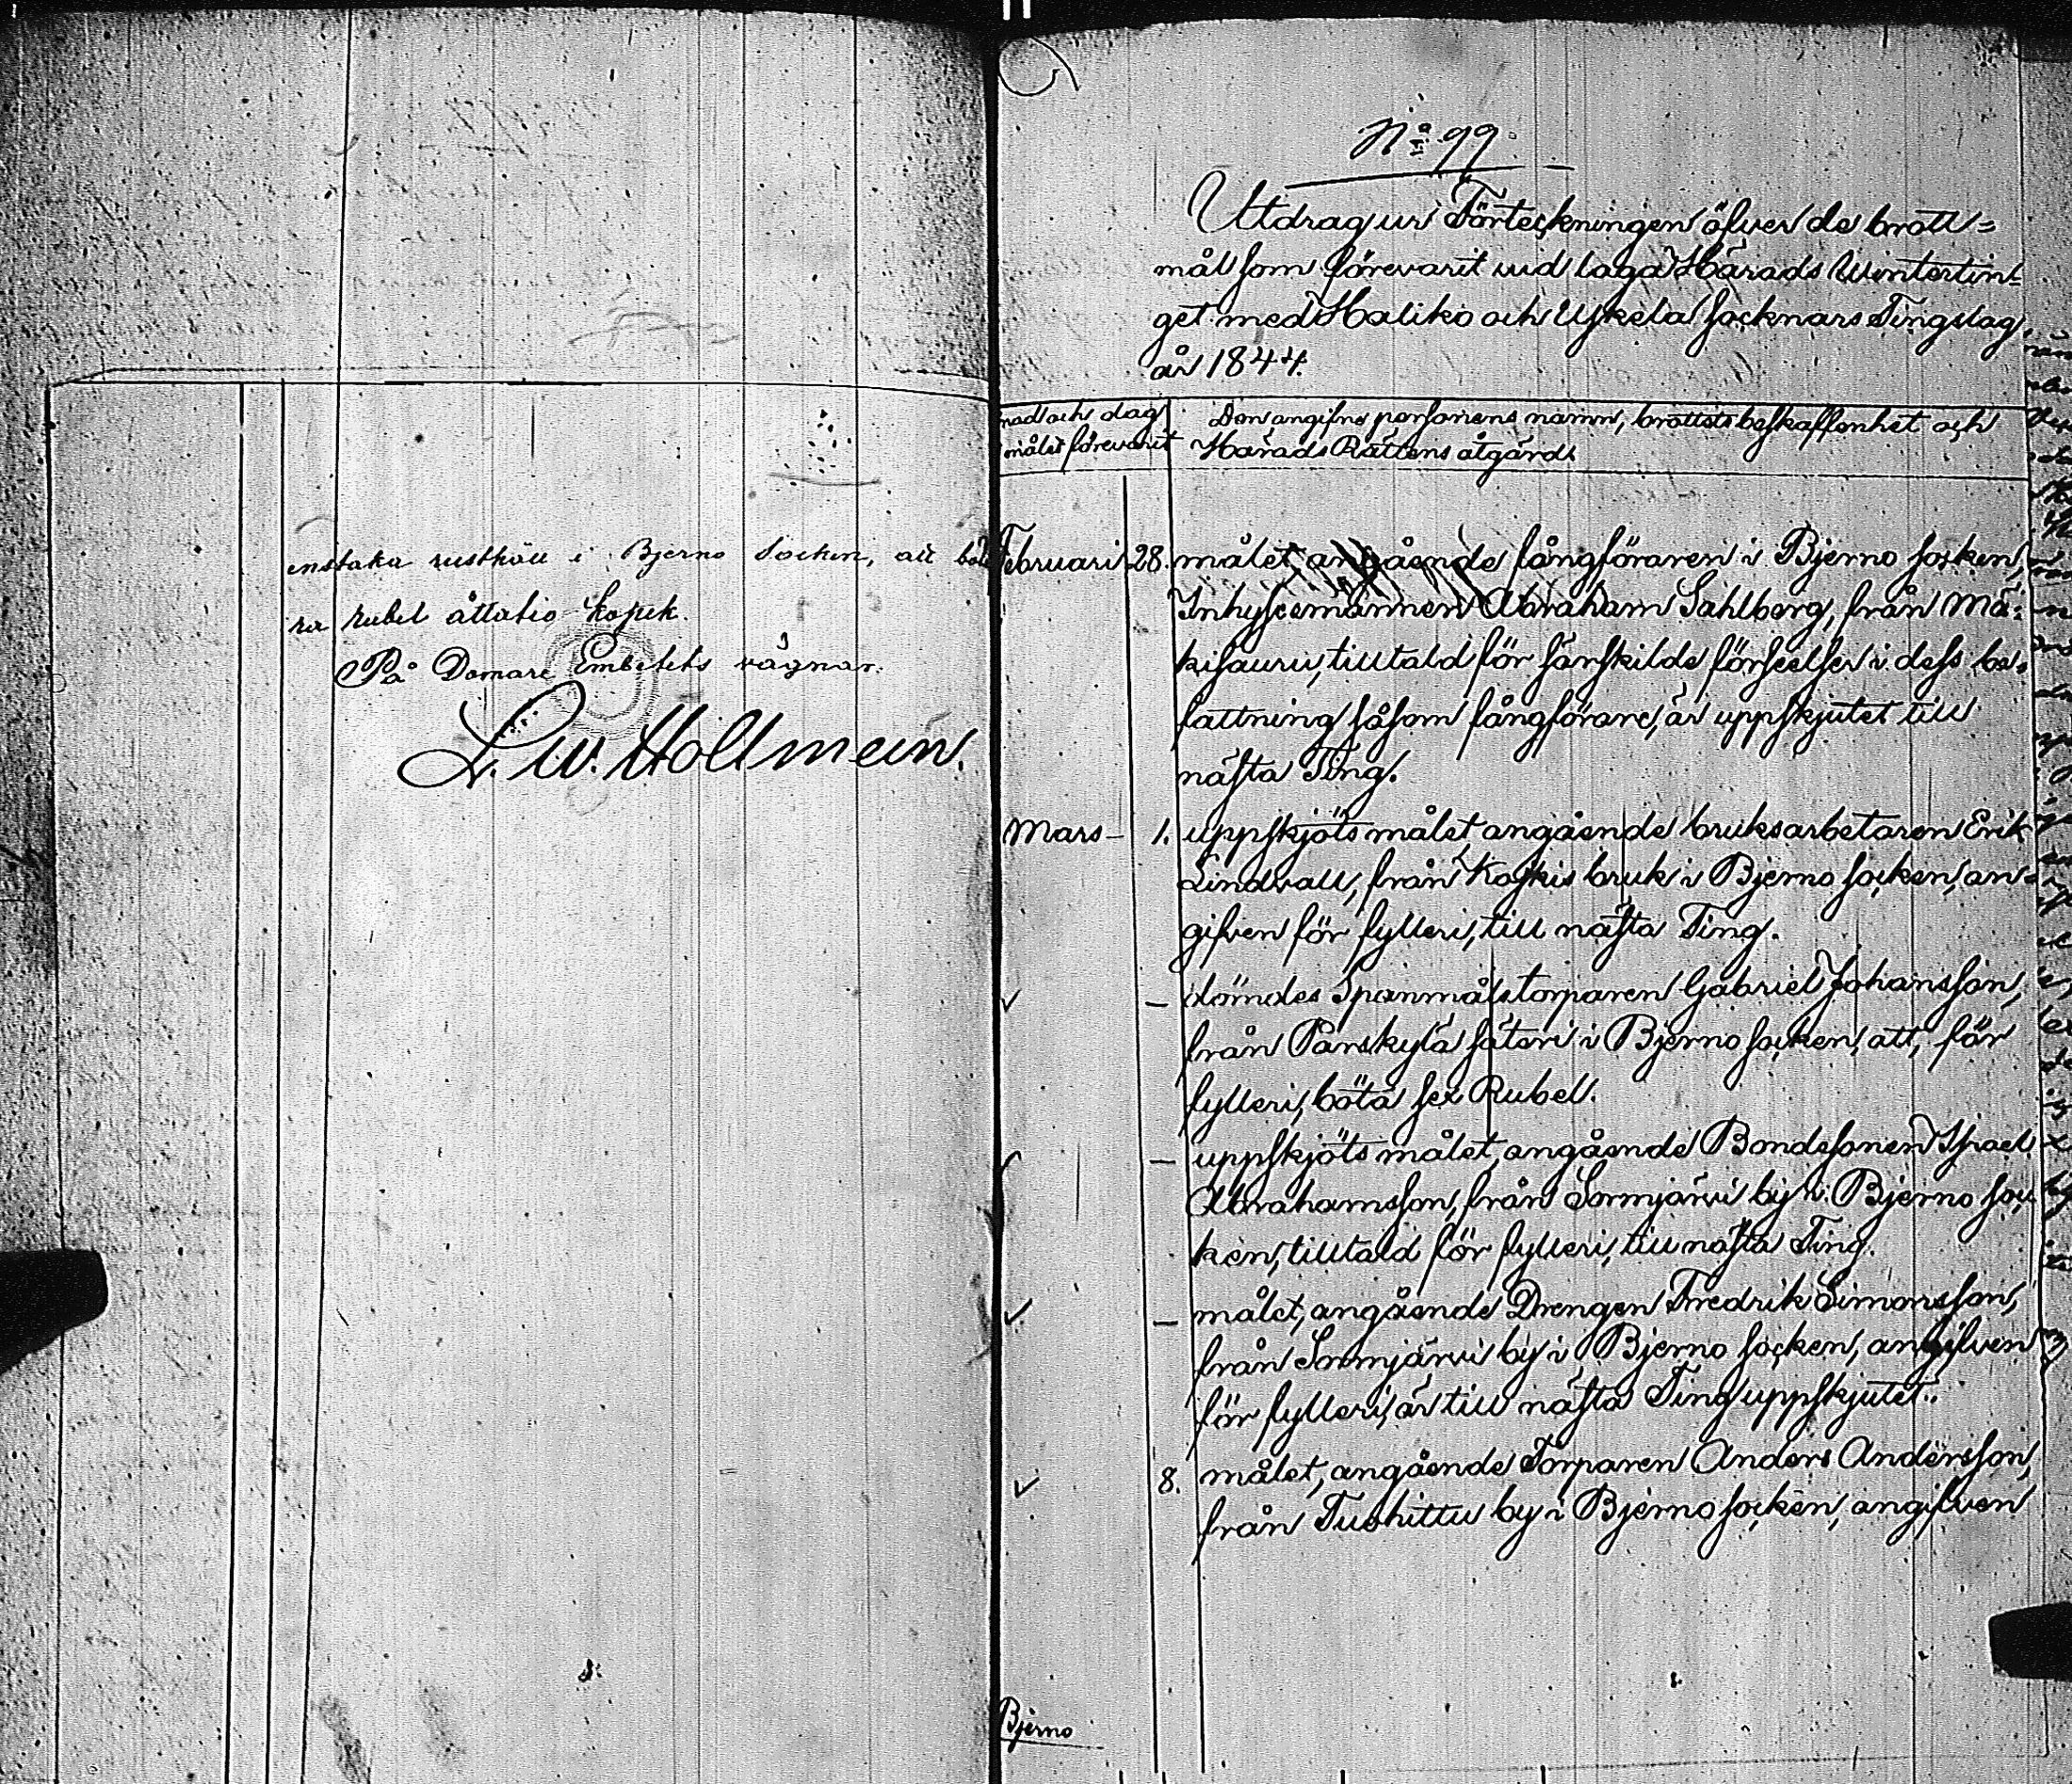 enstaka rusthåll i Bjerno Socken, att böt
ra rubel åttatio kopek.
På Domare Embetets vägnar.
L. W. Hollmein.
No 99.
Utdrag ur Förteckningen öfver de brott=
mål som förevarit vid laga Härads Vintertin=
get med Haliko och Uskela Socknars Tingslag,
år 1844.
nad och dag
målet förevarit
Den angifne personens namn, brottets beskaffenhet och
Härads Rättens åtgärd.
Februari 28. målet angående fångföraren i Bjerno socken,
Inhysesmannen Abraham Sahlberg, från Mä=
kisauru, tilltald för särskilde förseelser i dess be=
fattning såsom fångförare, är uppskjutet till
nästa Ting.
Mars – 1. uppskjöts målet angående bruksarbetaren Erik
Lindvall, från Koskis bruk i Bjerno socken, an=
gifven för fylleri, till nästa Ting.
– dömdes Spanmålstorparen Gabriel Johansson,
från Pärskylä säteri i Bjerno socken, att, för
fylleri, böta sex Rubel.
– uppskjöts målet, angående Bondesonen Israel
Abrahamsson, från Sormjärvi by i Bjerno soc
ken, tilltald för fylleri, till nästa Ting.
– målet, angående Drengen Fredrik Simonsson,
från Sormjärvi by i Bjerno socken, angifven
för fylleri, är till nästa Ting uppskjutet.
8. målet, angående Torparen Anders Andersson,
från Tuohittu by i Bjerno socken, angifven
Bjerno